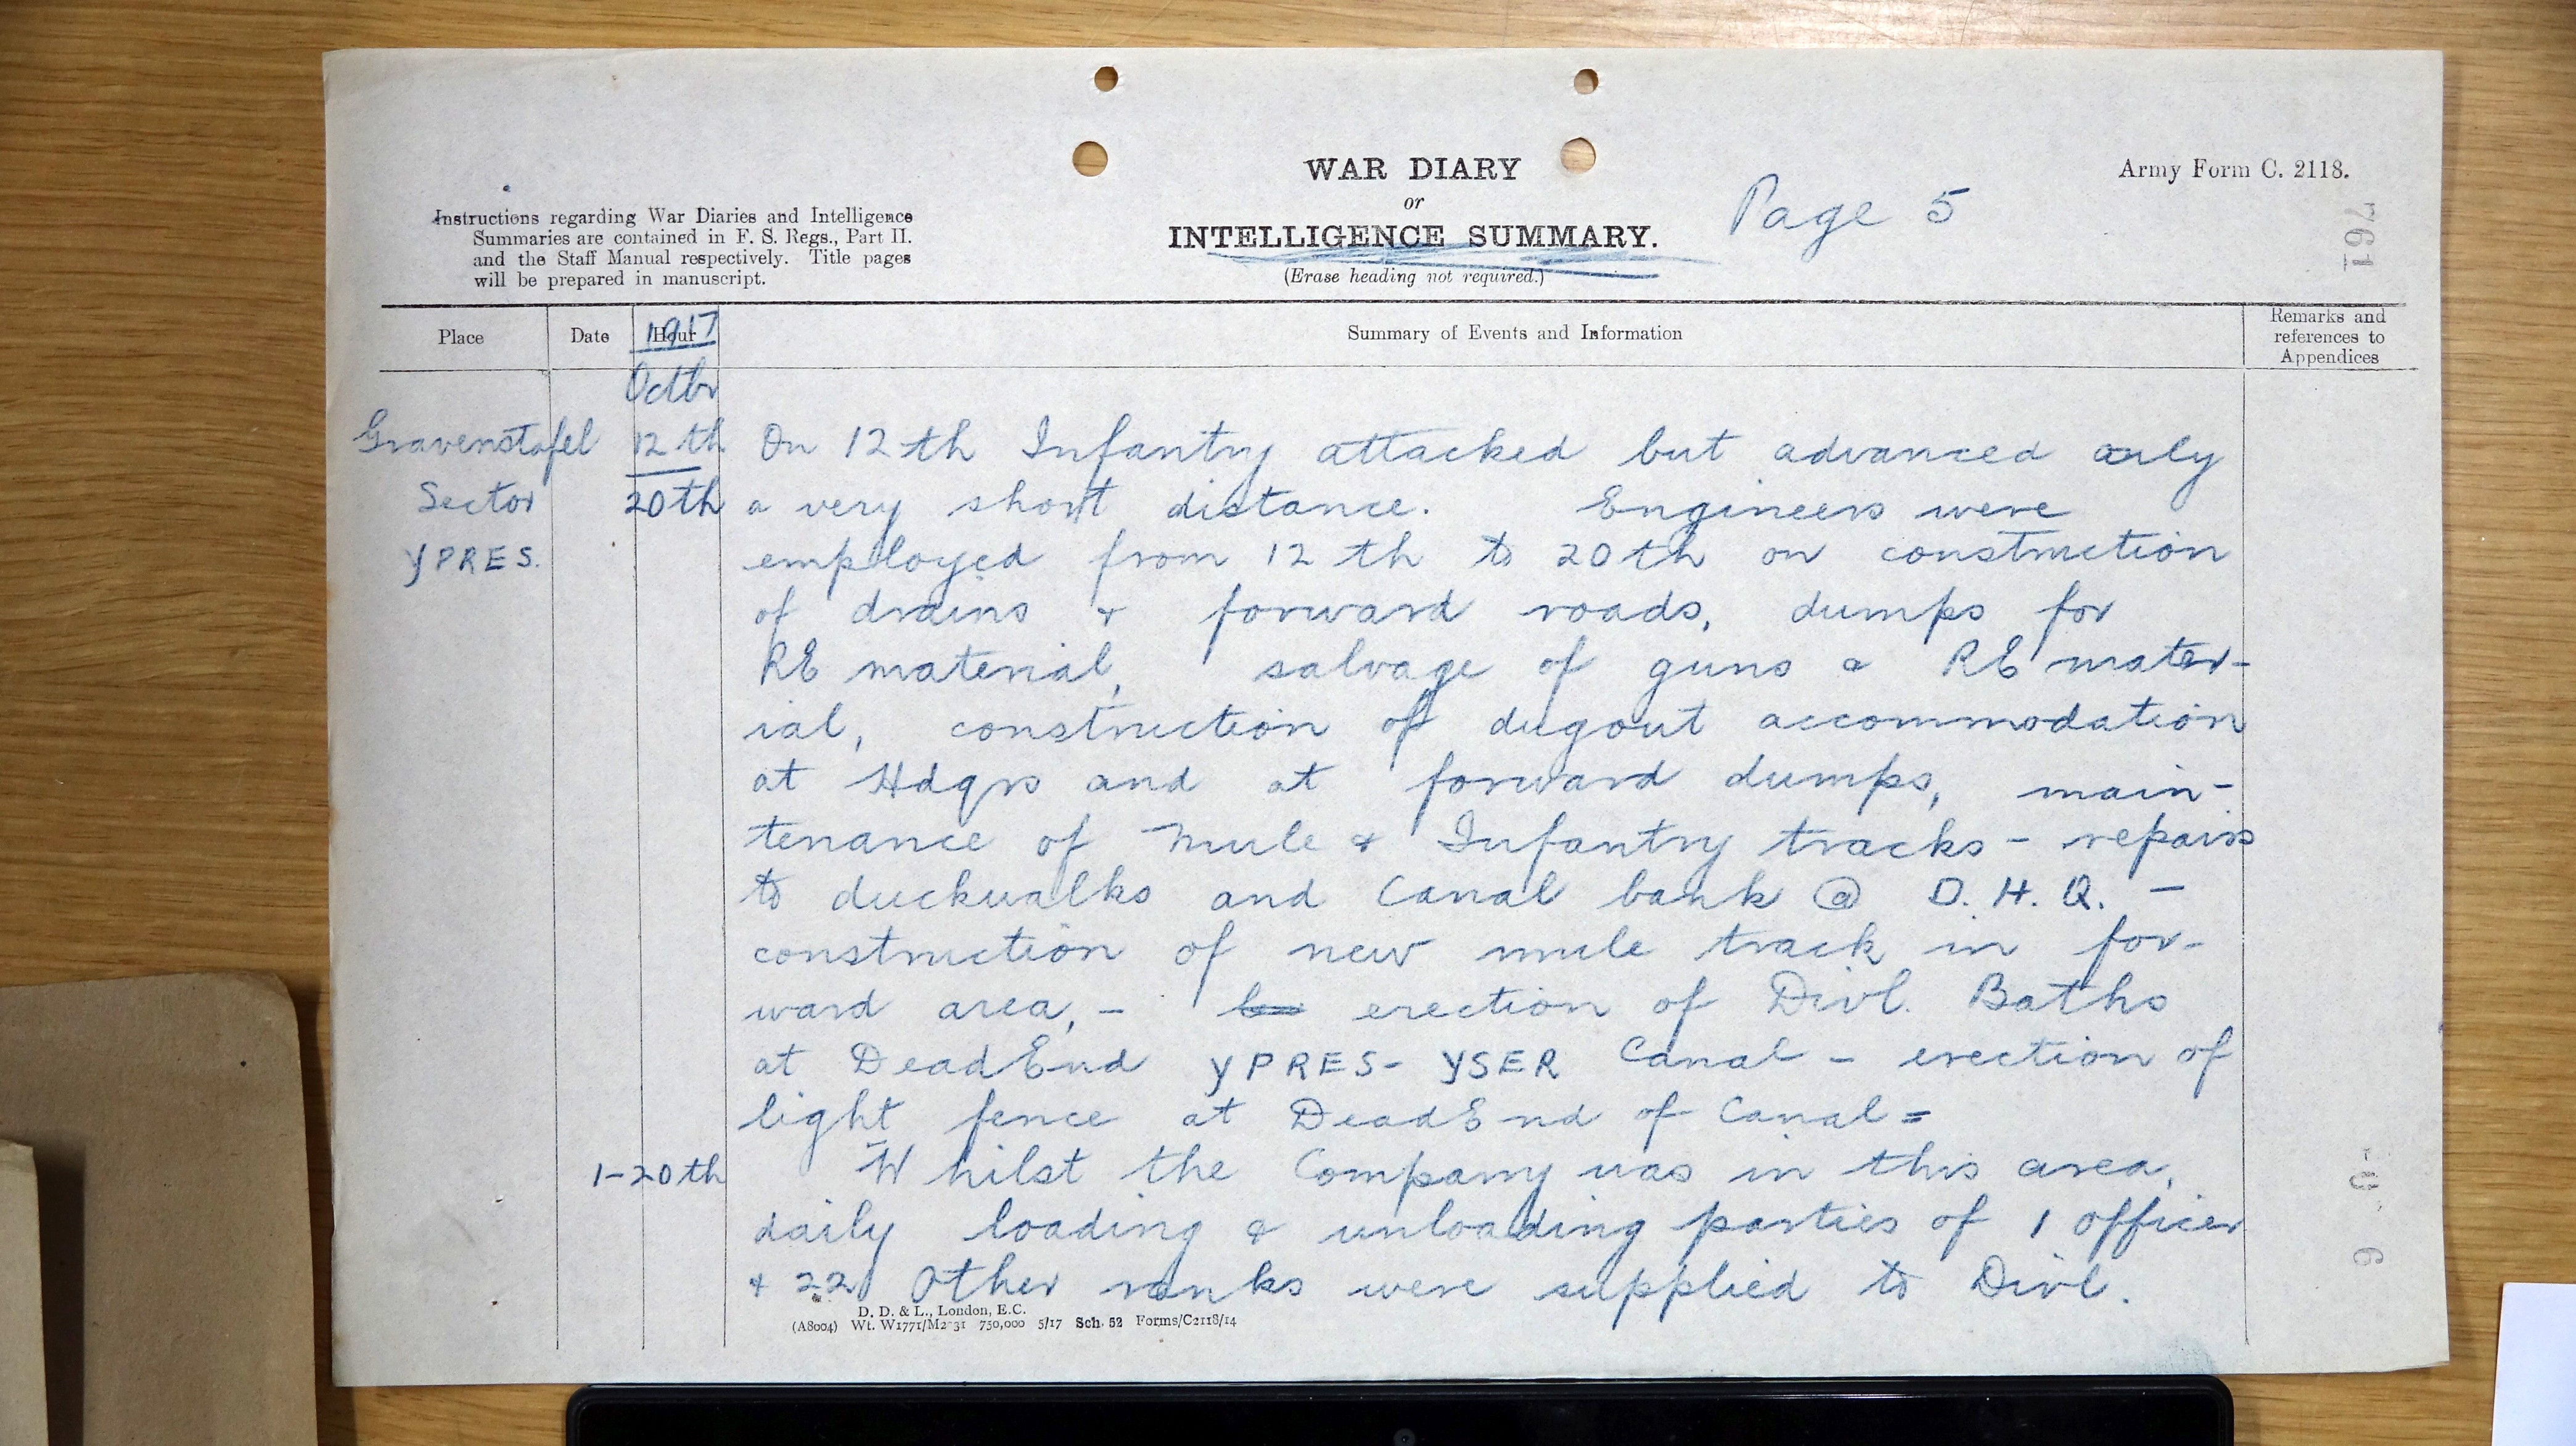 WAR DIARY
or
INTELLIGENCE SUMMARY.
(Erase heading not required.)
Page 5
Army Form C. 2118.
191
Instructions regarding War Diaries and Intelligence
Summaries are contained in F. S. Regs., Part II.
and the Staff Manual respectively. Title pages
will be prepared in manuscript.
Place Date Hour Summary of Events and Information Remarks and references to Appendices
1917
Octbr
Gravenstafel 12th On 12th Infantry attacked but advanced only
Sector 20th a very short distance. Engineers were
YPRES. employed from 12th to 20th on construction
of drains & forward roads, dumps for
RE material, salvage of guns & RE mater-
ial, construction of dugout accommodation
at Hdqrs and at forward dumps, main-
tenance of Mule & Infantry tracks - repairs
to duckwalks and Canal bank @ D.H.Q. -
construction of new mule track in for-
ward area, - erection of Divl. Baths
at DeadEnd YPRES-YSER Canal - erection of
light fence at DeadEnd of Canal =
1-20th Whilst the Company was in this area,
daily loading & unloading parties of 1 officer
& 22 Other ranks were supplied to Divl.
D. D. & L., London, E.C.
(A8004) Wt. W1771/M2 31 750,000 5/17 Sch. 52 Forms/C2118/14